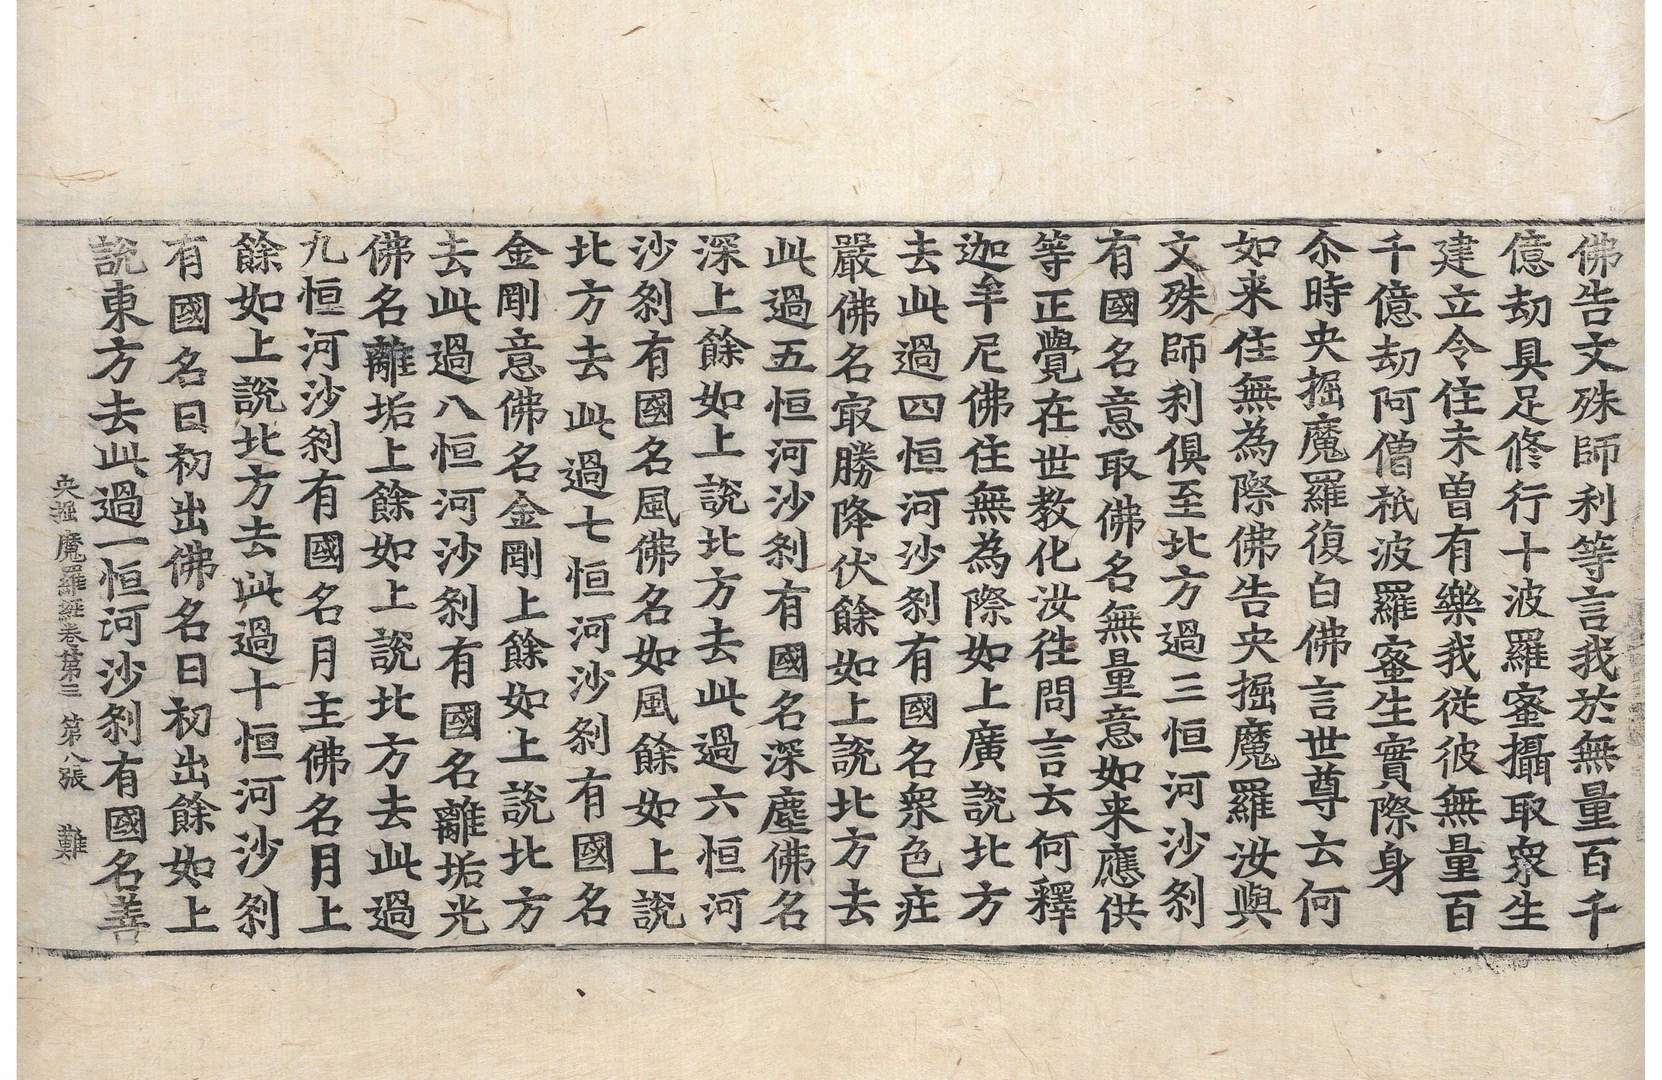 佛告文殊師利等言我於無量百千
億劫具足修行十波羅蜜攝取衆生
建立令住未曽有樂我従彼無量百
千億劫阿僧祇波羅蜜生實際身
尒時央掘魔羅復白佛言世尊云何
如来住無為際佛告央掘魔羅汝與
文殊師利俱至北方過三恒河沙刹
有國名意取佛名無量意如来應供
等正覺在世教化汝徃問言云何釋
迦牟尼佛住無為際如上廣說北方
去此過四恒河沙刹有國名衆色庄
嚴佛名㝡勝降伏餘如上說北方去
此過五恒河沙刹有國名深塵佛名
深上餘如上說北方去此過六恒河
沙刹有國名風佛名如風餘如上說
北方去此過七恒河沙刹有國名
金剛意佛名金剛上餘如上說北方
去此過八恒河沙刹有國名離垢光
佛名離垢上餘如上說北方去此過
九恒河沙刹有國名月主佛名月上
餘如上說北方去此過十恒河沙刹
有國名日初出佛名日初出餘如上
說東方去此過一恒河沙刹有國名善
央掘魔羅經卷第三 第八張 難